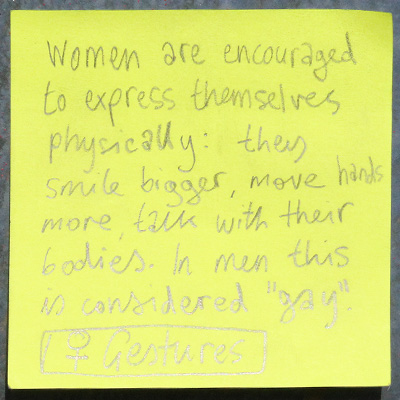 Women are encouraged
to express themselves
physically: they
smile bigger, move hands
more, talk with their
bodies. In men this
is considered "gay".
♀ Gestures